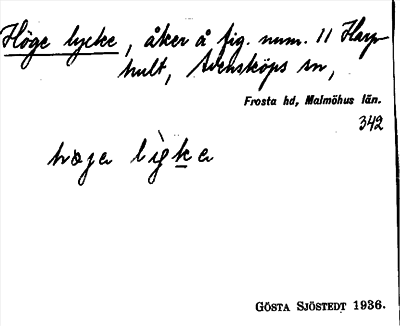 Höge lycke, åker å fig. num. 11 Harp-
hult, Svensköps sn,
Frosta hd, Malmöhus län.
342
GÖSTA SJÖSTEDT 1936.